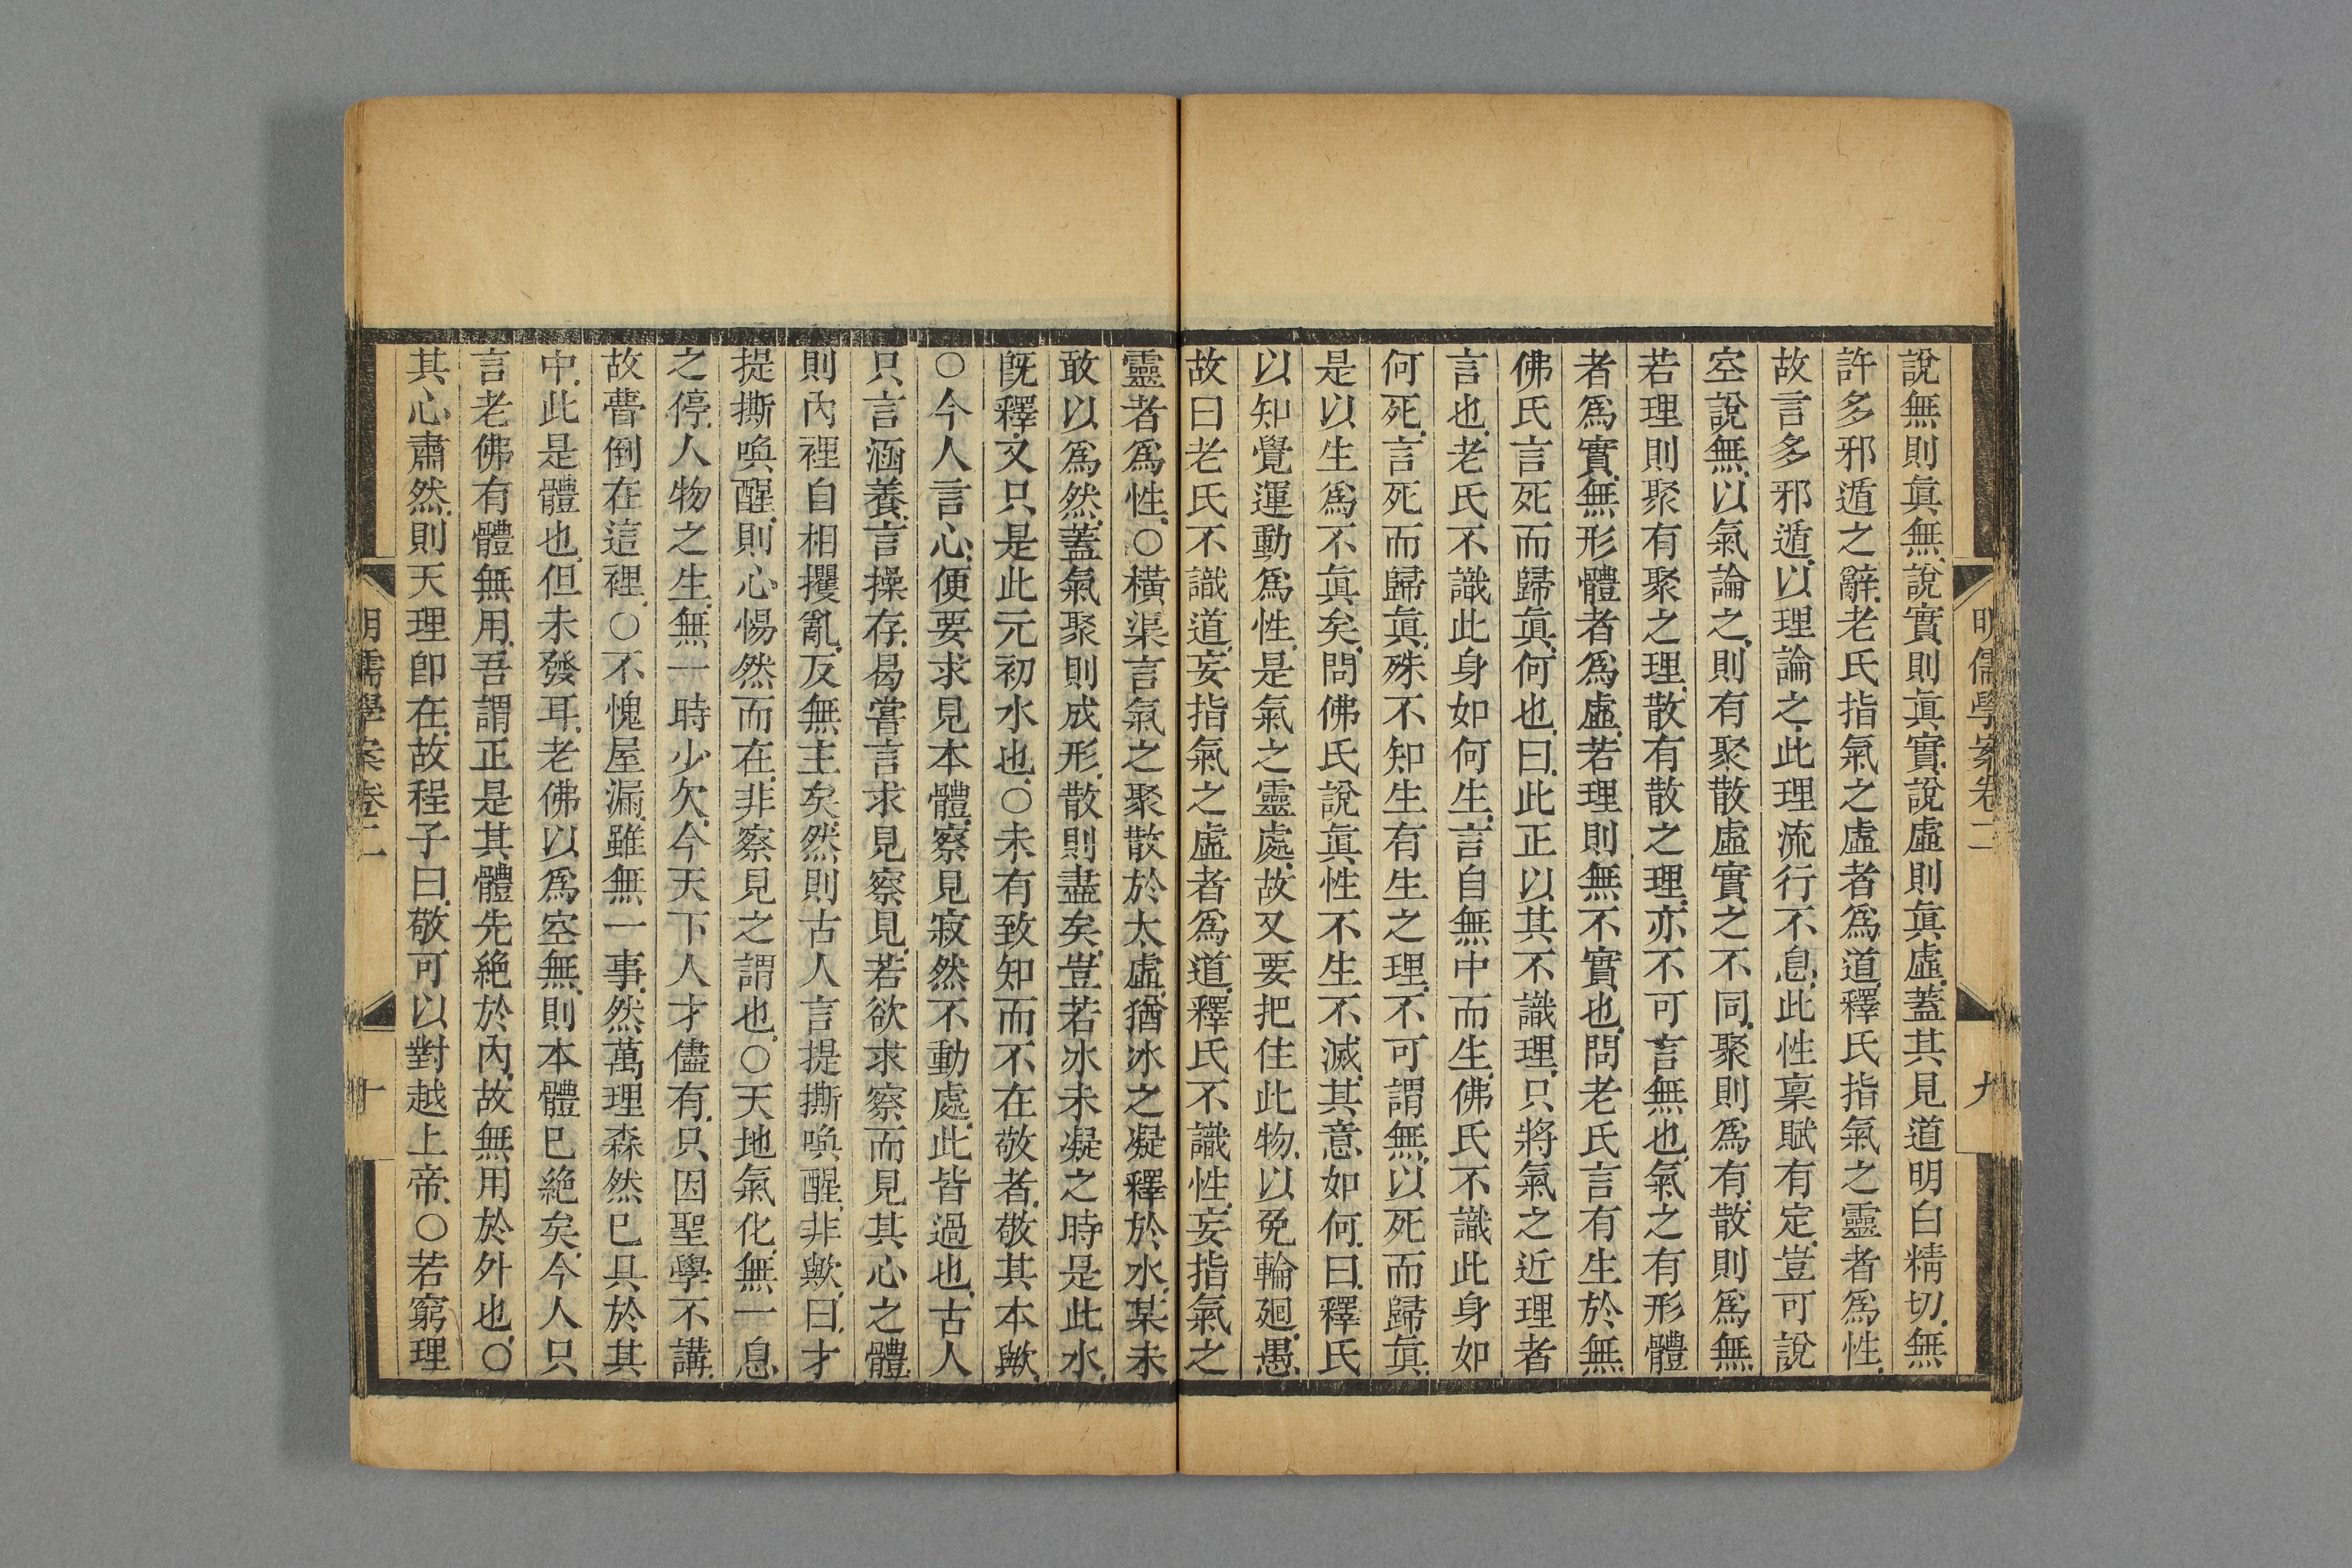 明儒學案卷二
九
說無則眞無說實則眞實說虛則眞虛蓋其見道明白精切無
許多邪遁之辭老氏指氣之虛者爲道釋氏指氣之靈者爲性
故言多邪遁以理論之此理流行不息此性稟賦有定豈可說
空說無以氣論之則有聚散虛實之不同聚則爲有散則爲無
若理則聚有聚之理散有散之理亦不可言無也氣之有形體
者爲實無形體者爲虛若理則無不實也問老氏言有生於無
佛氏言死而歸眞何也曰此正以其不識理只將氣之近理者
言也老氏不識此身如何生言自無中而生佛氏不識此身如
何死言死而歸眞殊不知生有生之理不可謂無以死而歸眞
是以生爲不眞矣問佛氏說眞性不生不滅其意如何曰釋氏
以知覺運動爲性是氣之靈處故又要把住此物以免輪廻愚
故曰老氏不識道妄指氣之虛者爲道釋氏不識性妄指氣之
靈者爲性○橫渠言氣之聚散於太虛猶冰之凝釋於水某未
敢以爲然蓋氣聚則成形散則盡矣豈若冰未凝之時是此水
旣釋又只是此元初水也○未有致知而不在敬者敬其本歟
○今人言心便要求見本體察見寂然不動處此皆過也古人
只言涵養言操存曷嘗言求見察見若欲求察而見其心之體
則內裡自相攫亂反無主矣然則古人言提撕喚醒非歟曰才
提撕喚醒則心惕然而在非察見之謂也○天地氣化無一息
之停人物之生無一時少欠今天下人才儘有只因聖學不講
故瞢倒在這裡○不愧屋漏雖無一事然萬理森然已具於其
中此是體也但未發耳老佛以爲空無則本體已絕矣今人只
言老佛有體無用吾謂正是其體先絕於內故無用於外也○
其心肅然則天理卽在故程子曰敬可以對越上帝○若窮理
明儒學案卷二
十